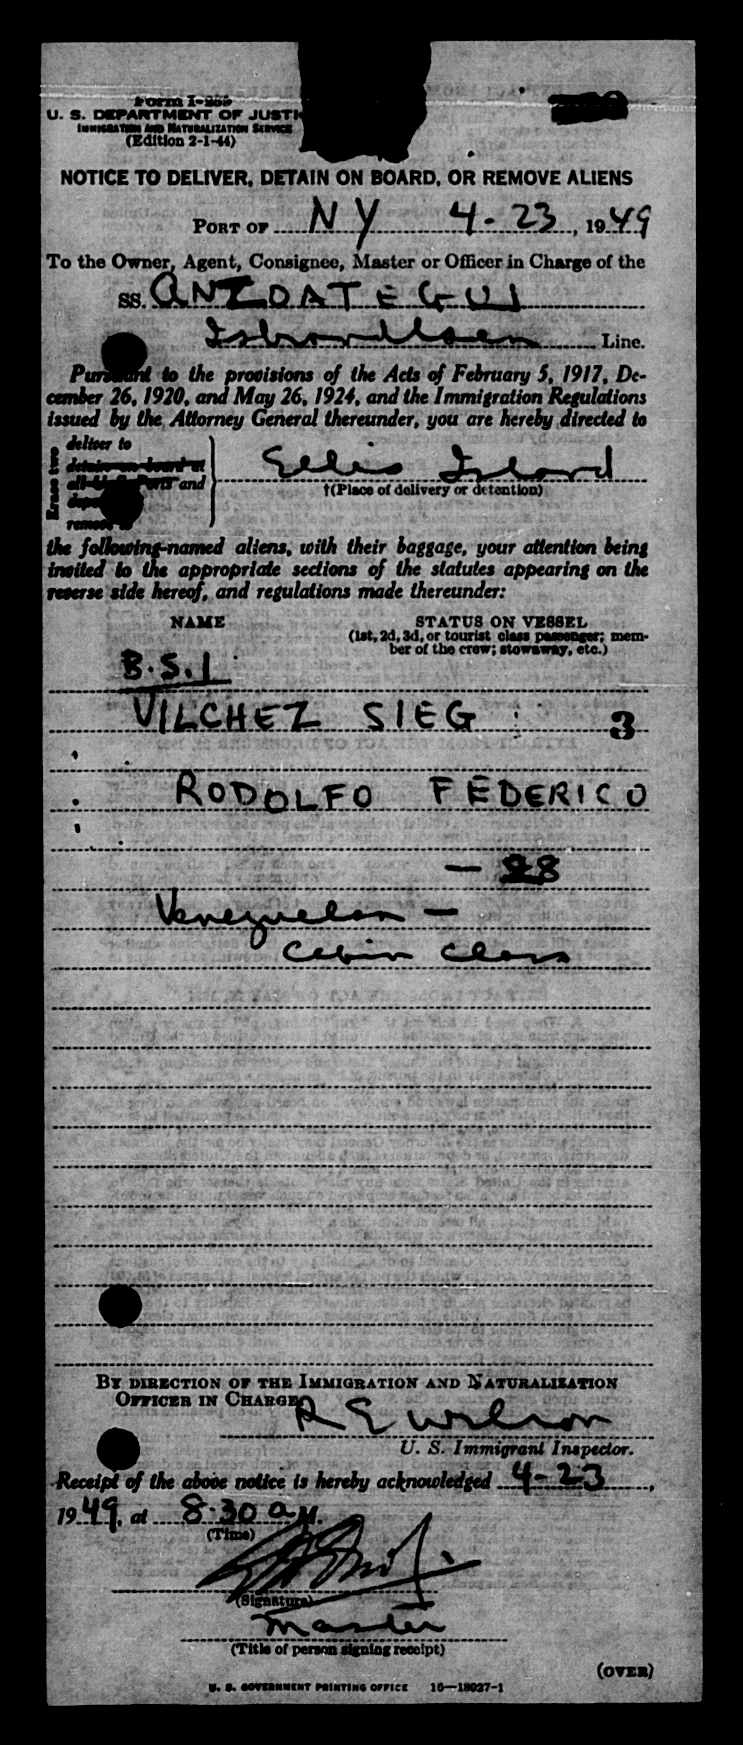 Form I-259
U. S. DEPARTMENT OF JUSTI
IMMIGRATION AND NATURALIZATION SERVICE
(Edition 2-1-44)
NOTICE TO DELIVER, DETAIN ON BOARD, OR REMOVE ALIENS
PORT OF NY 4-23, 1949
To the Owner, Agent, Consignee, Master or Officer in Charge of the
SS. ANZOATEGUI
Line.
Pursuant to the provisions of the Acts of February 5, 1917, De-
cember 26, 1920, and May 26, 1924, and the Immigration Regulations
issued by the Attorney General thereunder, you are hereby directed to
Erase two
deliver to
detain on board at
all U. S. Ports and
remove to
Ellis Island
†(Place of delivery or detention)
the following-named aliens, with their baggage, your attention being
invited to the appropriate sections of the statutes appearing on the
reverse side hereof, and regulations made thereunder:
NAME STATUS ON VESSEL
(1st, 2d, 3d, or tourist class passenger; mem-
ber of the crew; stowaway, etc.)
B.S.I.
VILCHEZ SIEG 3
RODOLFO FEDERICO
— 28
Venezuelan —
Cabin Class
BY DIRECTION OF THE IMMIGRATION AND NATURALIZATION
OFFICER IN CHARGE
R E Wilson
U. S. Immigrant Inspector.
Receipt of the above notice is hereby acknowledged 4-23,
1949, at 8:30 a.m.
(Time)
(Signature)
Master
(Title of person signing receipt)
(OVER)
U. S. GOVERNMENT PRINTING OFFICE 16—18027-1